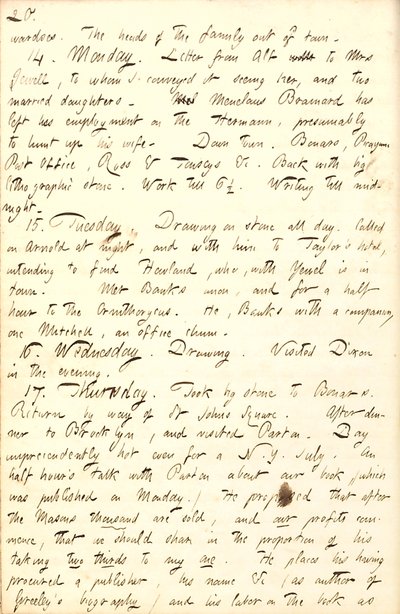 20.
wardses. The heads of the family out of town.
14. Monday. Letter from Alf to Mrs
Jewell, to whom I conveyed it seeing her, and two
married daughters. Menelaus Brainard has
left his employment on the Hermann, presumably
to hunt up his wife. Down town. Bonars,
Post Office, Ross & Touseys &c. Back with big
lithographic stone. Work till 6½. Writing till mid-
night.
15. Tuesday. Drawing on stone all day. Called
on Arnold at night, and with him to Taylor's hotel,
intending to find Howland, who, with Yewel is in
town. Met Banks anon, and for a half
hour to the Ornithorycus. He, Banks with a companion,
one Mitchell, an office chum.
16. Wednesday. Drawing. Visited Dixon
in the evening.
17. Thursday. Took big stone to Bonars.
Return by way of St Johns Square. After din-
ner to Brooklyn, and visited Parton. Day
imprecedently hot even for a N. Y. July. An
half hour's talk with Parton about our book, (which
was published on Monday.) He proposed that after
the Masons thousand are sold, and our profits com-
mence, that we should share in the proportion of his
taking two thirds to my one. He places his having
procured a publisher, his name &c (as author of
Greeley's biography) and his labor on the book as